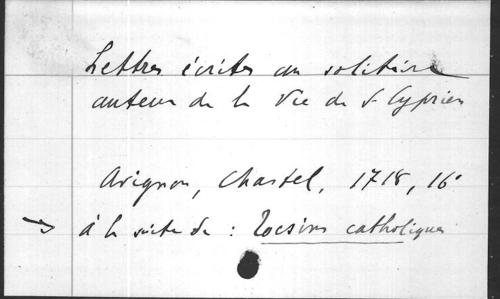 Lettres écrites au solitaire
auteur de la Vie de S. Cyprien
Avignon, Chastel, 1718, 16°
→ à la suite de : Tocsins catholiques